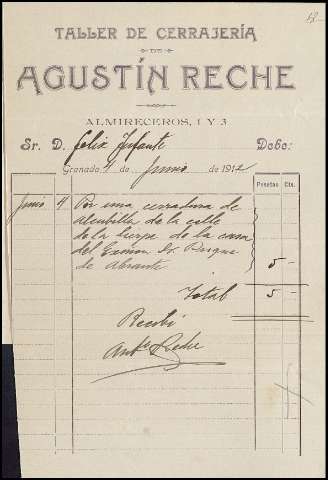 TALLER DE CERRAJERÍA
DE
AGUSTÍN RECHE
ALMIRECEROS, 1 Y 3
Sr. D. Felix Infante Debe:
Granada 4 de Junio de 1912
Pesetas Cts.
Junio 4 Por una cerradura de
Alcubilla de la calle
de la de la casa
del Duque
de Abrante 5 -
Total 5 -
Recibi
Reche